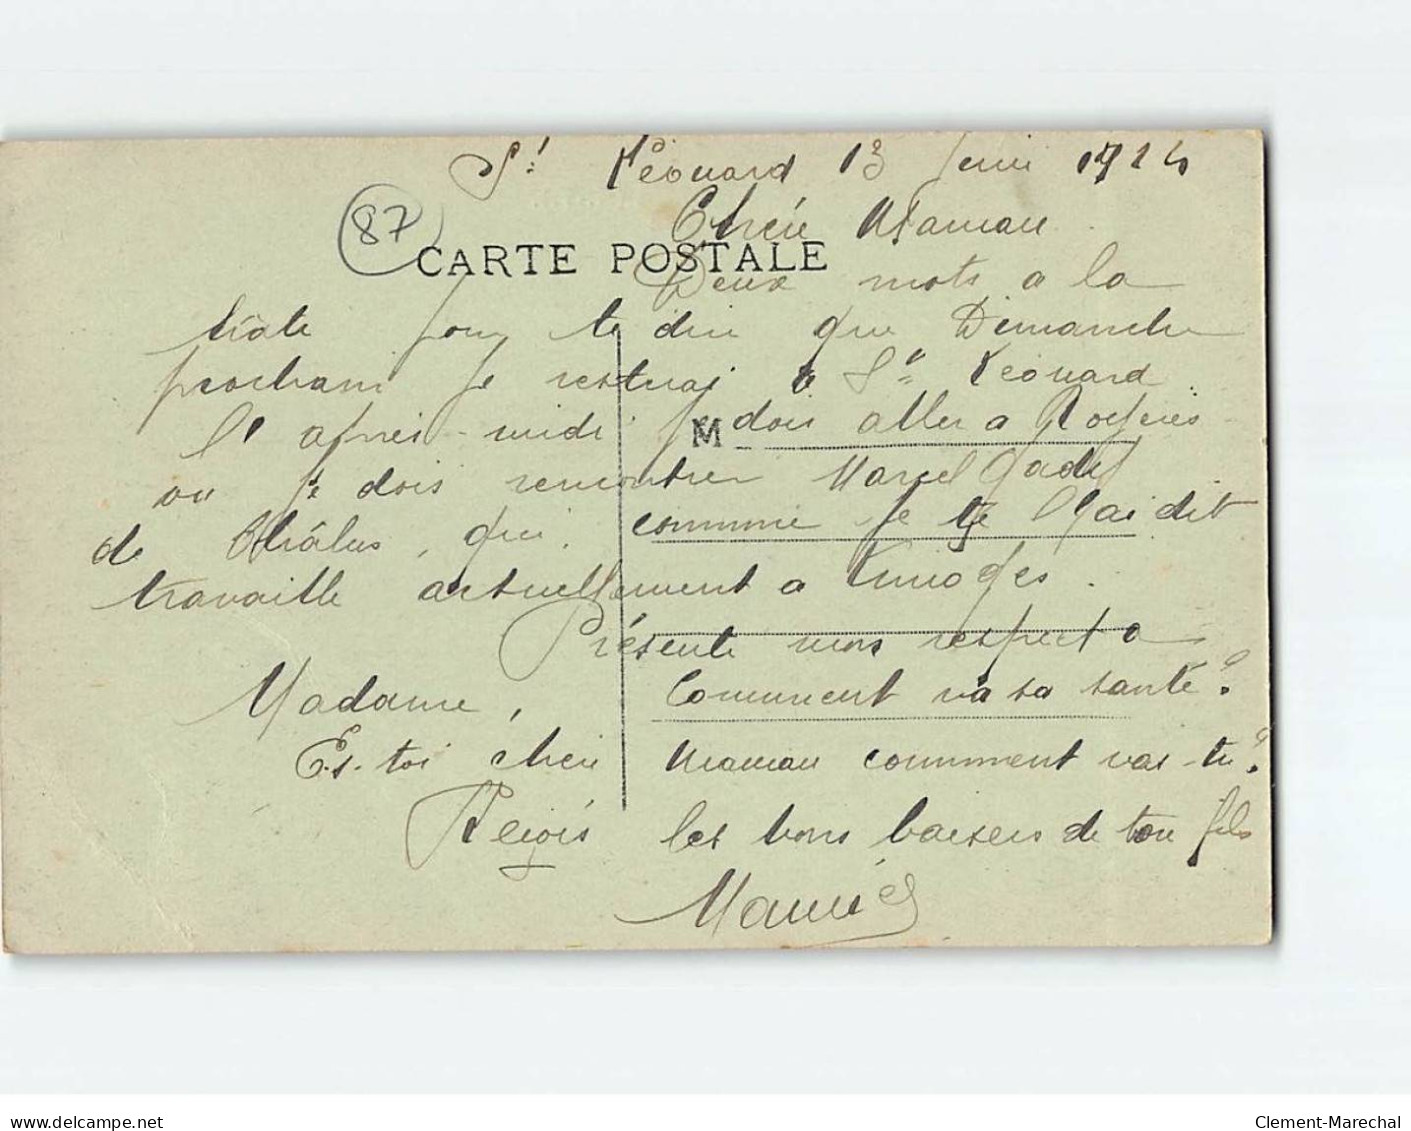 St Léonard 13 Juin 1924
87
Chère Maman
CARTE POSTALE
Deux mots a la
hâte pour te dire que Dimanche
prochain je resterai a St Léonard
l'après-midi je dois aller a
M
ou je dois rencontrer Marcel
de Châlus, qui, comme je te l'ai dit
travaille actuellement a Limoges.
Présente mes respect a
Madame, Comment va sa santé?
Et toi chère Maman comment vas-tu?
Reçois les bons baisers de ton fils
Maurice
www.delcampe.net
Clement-Marechal